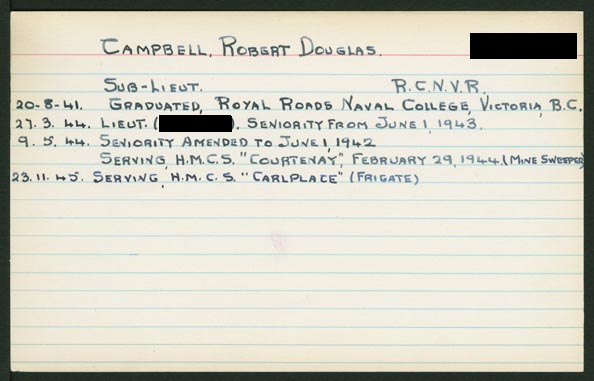 CAMPBELL, ROBERT DOUGLAS.
SUB-LIEUT. R.C.N.V.R.
20-8-41. GRADUATED, ROYAL ROADS NAVAL COLLEGE, VICTORIA, B.C.
27.3.44. LIEUT. ( ), SENIORITY FROM JUNE 1, 1943.
9.5.44. SENIORITY AMENDED TO JUNE 1, 1942
SERVING, H.M.C.S. "COURTENAY", FEBRUARY 29, 1944 (MINE SWEEPER)
23.11.45. SERVING, H.M.C.S. "CARLPLACE" (FRIGATE)